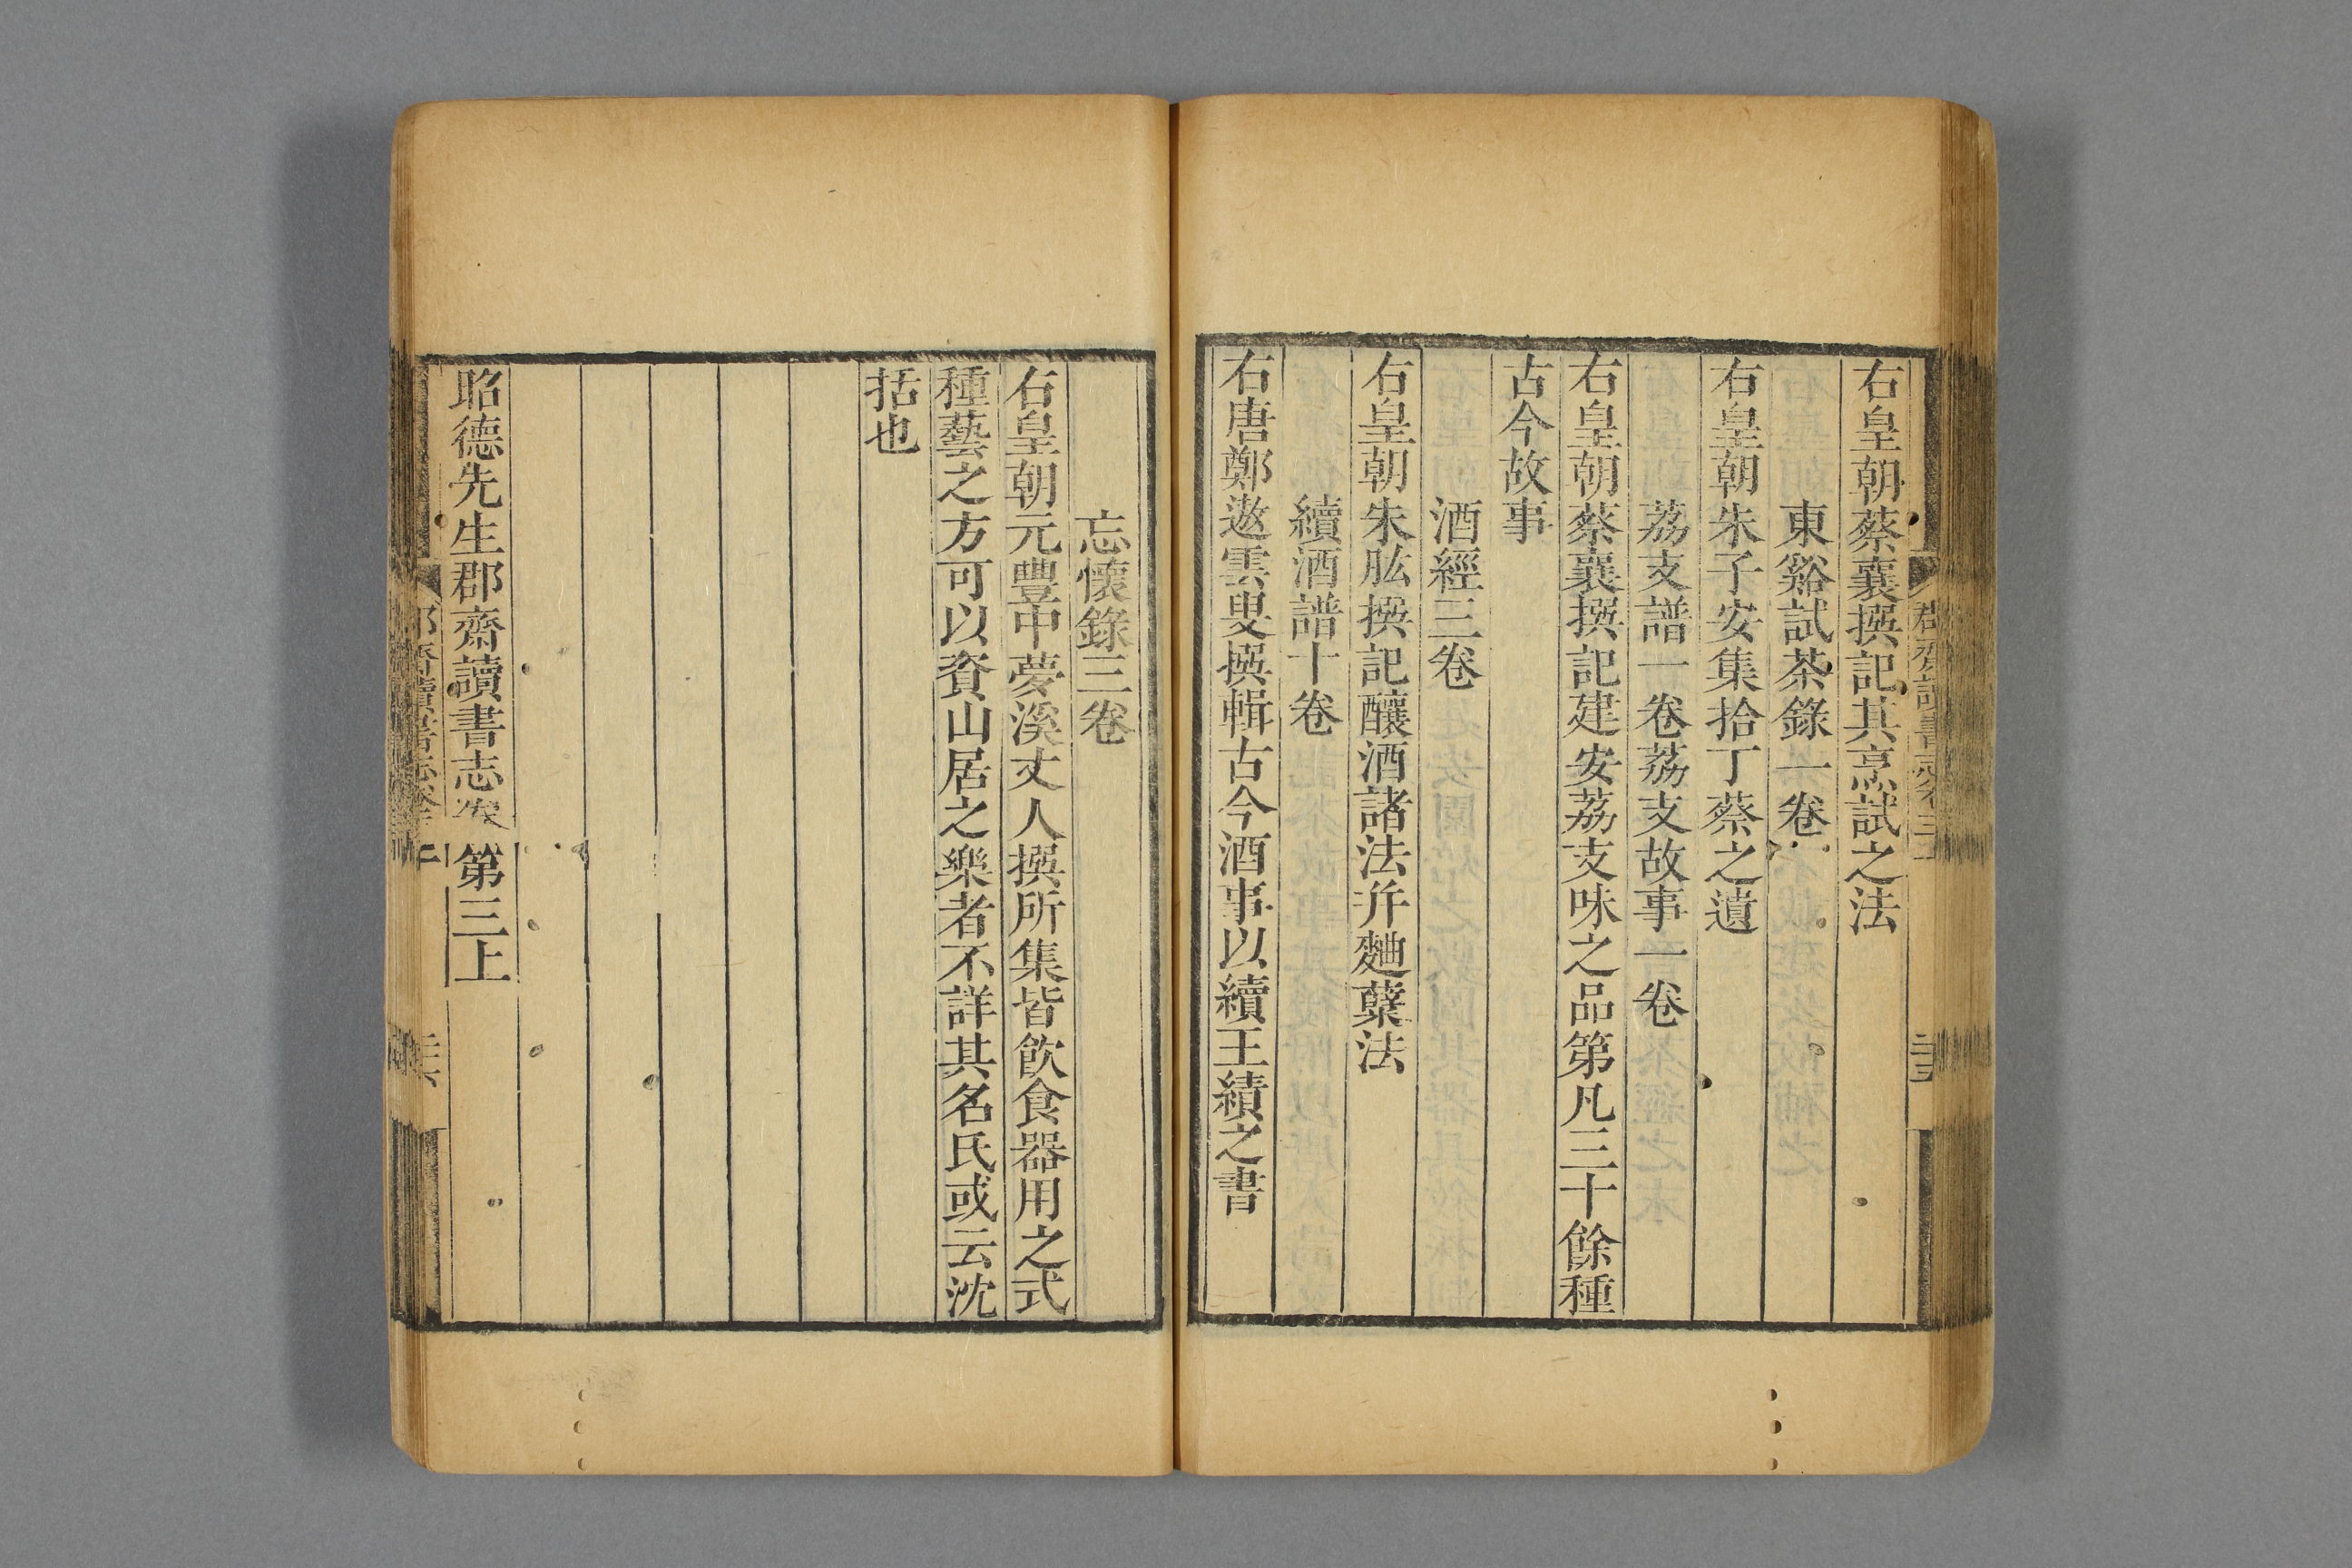 右皇朝蔡襄撰記其烹試之法
東谿試茶錄一卷
右皇朝朱子安集拾丁蔡之遺
荔支譜一卷荔支故事一卷
右皇朝蔡襄撰記建安荔支味之品第凡三十餘種
古今故事
酒經三卷
右皇朝朱肱撰記釀酒諸法并麯蘖法
續酒譜十卷
右唐鄭遨雲叟撰輯古今酒事以續王績之書
忘懷錄三卷
右皇朝元豐中夢溪丈人撰所集皆飲食器用之式
種藝之方可以資山居之樂者不詳其名氏或云沈
括也
昭德先生郡齋讀書志卷第三上